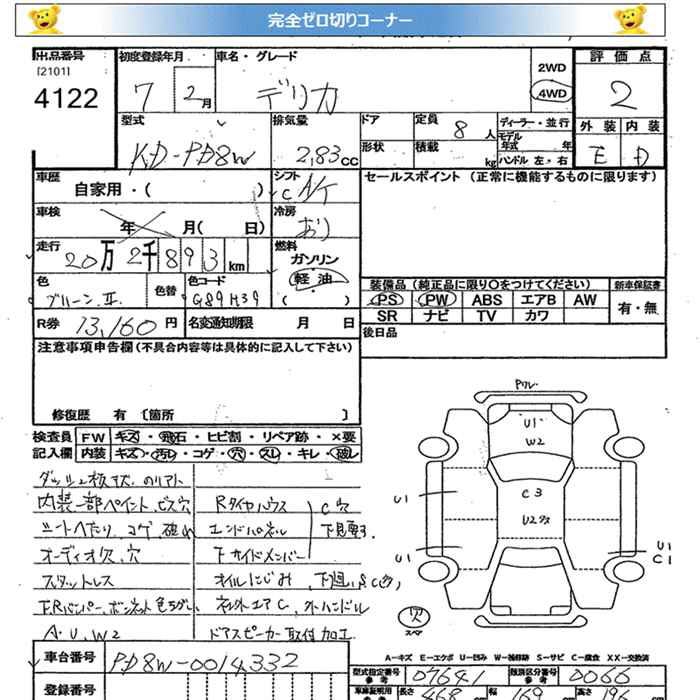 完全ゼロ切りコーナー
出品番号 初度登録年月 車名・グレード 2WD 評価点
[2101]
4122 7 2月 デリカ 4WD 2
型式 排気量 ドア 定員 8人 ディーラー・並行 外装 内装
KD-PD8W 2,83cc 形状 積載 kg モデル年式 年 E D
ハンドル左・右
車歴 シフト セールスポイント (正常に機能するものに限ります)
自家用・( ) C A/T
車検 年 月( 日) 冷房
走行 燃料
20万2千893km ガソリン
色 色替 色コード 軽油 装備品(純正品に限り〇をつけてください) 新車保証書
グリーン II G89H39 ( ) PS PW ABS エアB AW 有・無
SR ナビ TV カワ
R券 13,160円 名変通知期限 月 日 後日品
注意事項申告欄(不具合内容等は具体的に記入して下さい)
修復歴 有 [箇所 ]
検査員 FW キズ・飛石・ヒビ割・リペア跡・×要
記入欄 内装 キズ・汚レ・コゲ・穴・スレ・キレ・破レ
内装一部ペイント、ビス穴 Rタイヤハウス C穴
シートへたり、コゲ 破れ エンドパネル 下見要す
オーディオ欠、穴 Fサイドメンバー
スタットレス オイルにじみ、下廻りSC(穴)
F.Rバンパー、ボンネット色ちがい
A、U、W2 ドアスピーカー取付加工
U1
W2
C3
U2
U1
U1
U1
C1
欠
スペア
A-キズ E-エクボ U-凹み W-補修跡 S-サビ C-腐食 XX-交換済
車台番号 PD8W-0014332 型式指定番号 参考 07641 類別区分番号 参考 0066
登録番号 車庫証明用 参考 長さ 468cm 幅 169 高さ 196